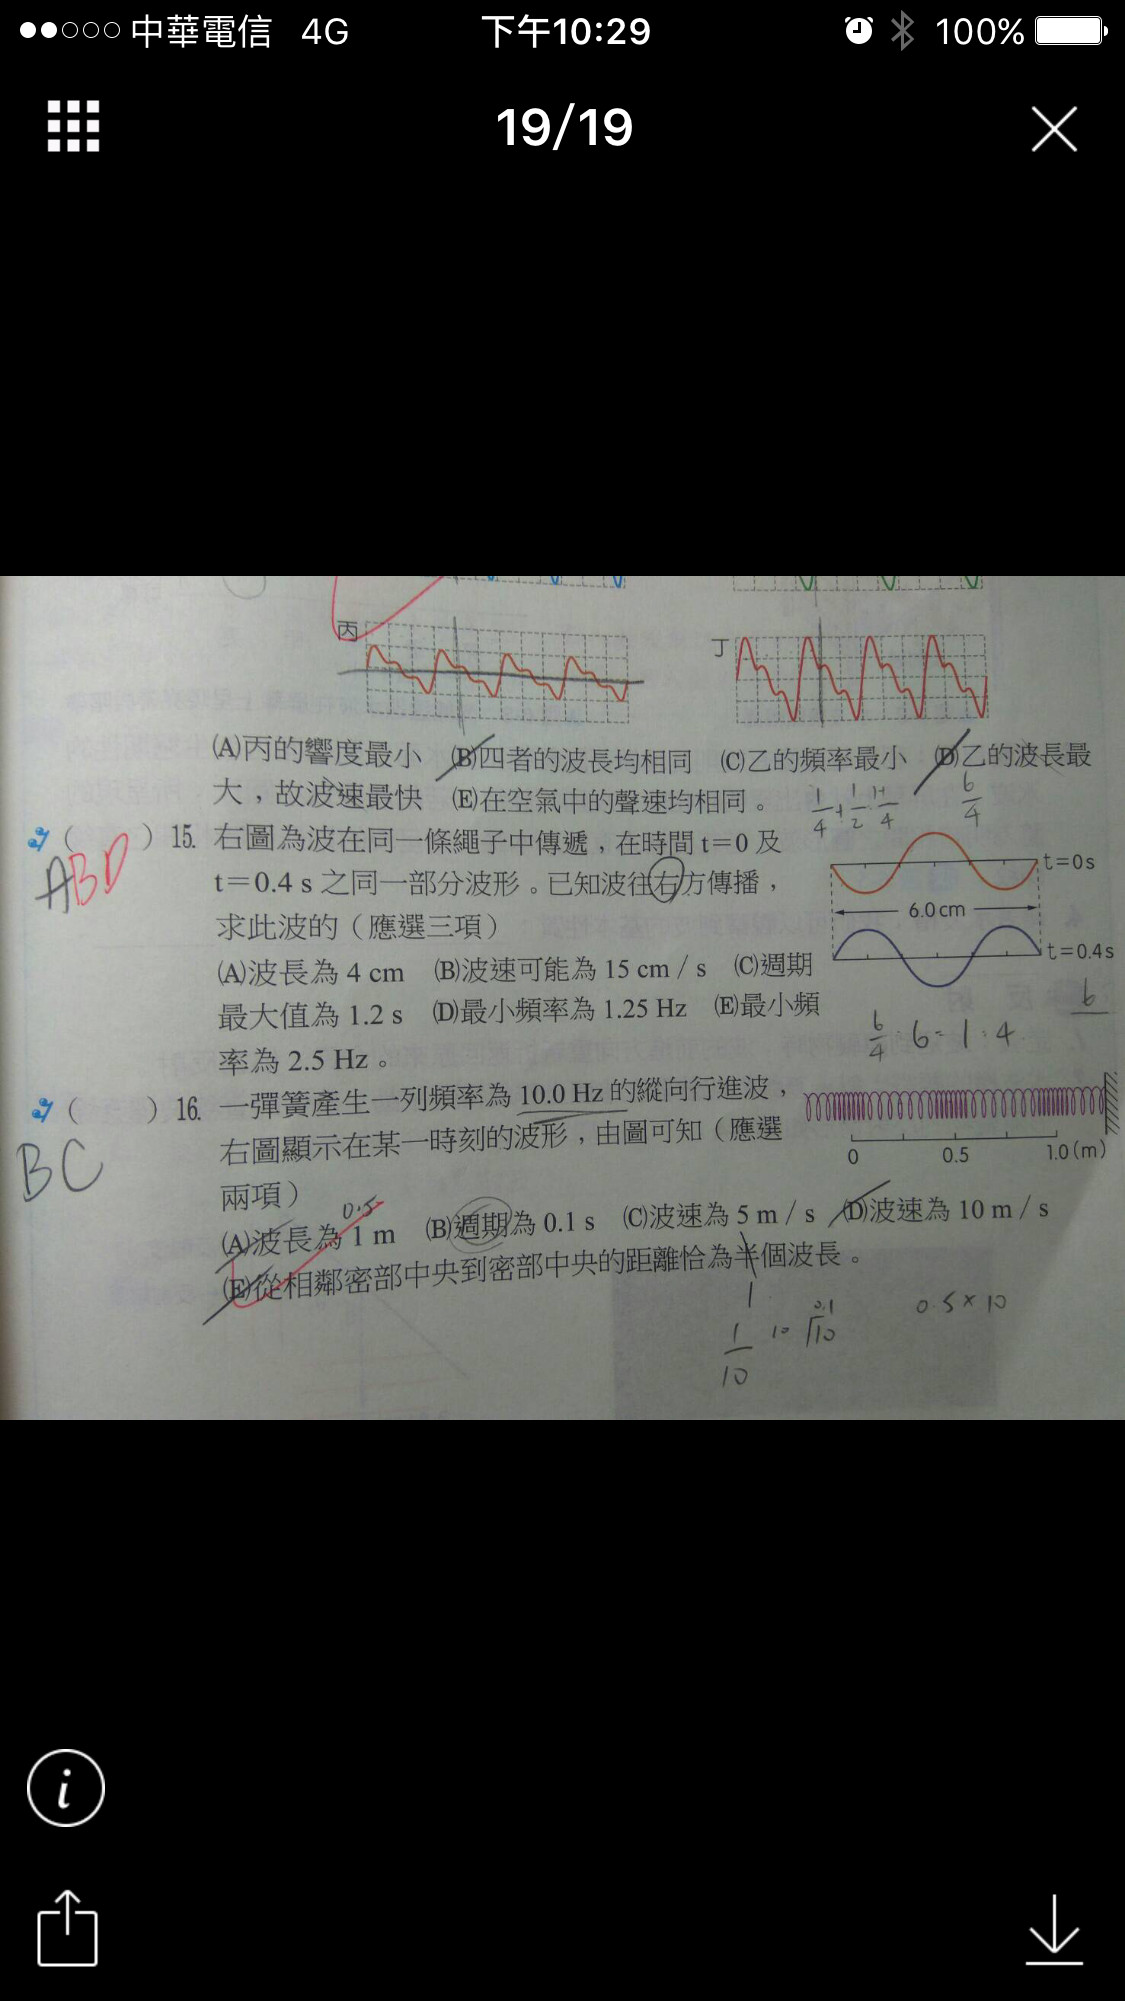 中華電信 4G 下午10:29 100%
19/19
丙
丁
(A)丙的響度最小 (B)四者的波長均相同 (C)乙的頻率最小 (D)乙的波長最
大，故波速最快 (E)在空氣中的聲速均相同。
1/4 + 1/2
6/4
( ) 15. 右圖為波在同一條繩子中傳遞，在時間 t＝0 及
ABD
t＝0.4 s 之同一部分波形。已知波往右方傳播，
求此波的（應選三項）
(A)波長為 4 cm (B)波速可能為 15 cm / s (C)週期
最大值為 1.2 s (D)最小頻率為 1.25 Hz (E)最小頻
率為 2.5 Hz。
t=0s
6.0 cm
t=0.4s
6
6/4 : 6 = 1 : 4
( ) 16. 一彈簧產生一列頻率為 10.0 Hz 的縱向行進波，
BC
右圖顯示在某一時刻的波形，由圖可知（應選
兩項）
0 0.5 1.0 (m)
0.5
(A)波長為 1 m (B)週期為 0.1 s (C)波速為 5 m / s (D)波速為 10 m / s
(E)從相鄰密部中央到密部中央的距離恰為半個波長。
1
1/10
0.1
10 10
0.5 × 10
i